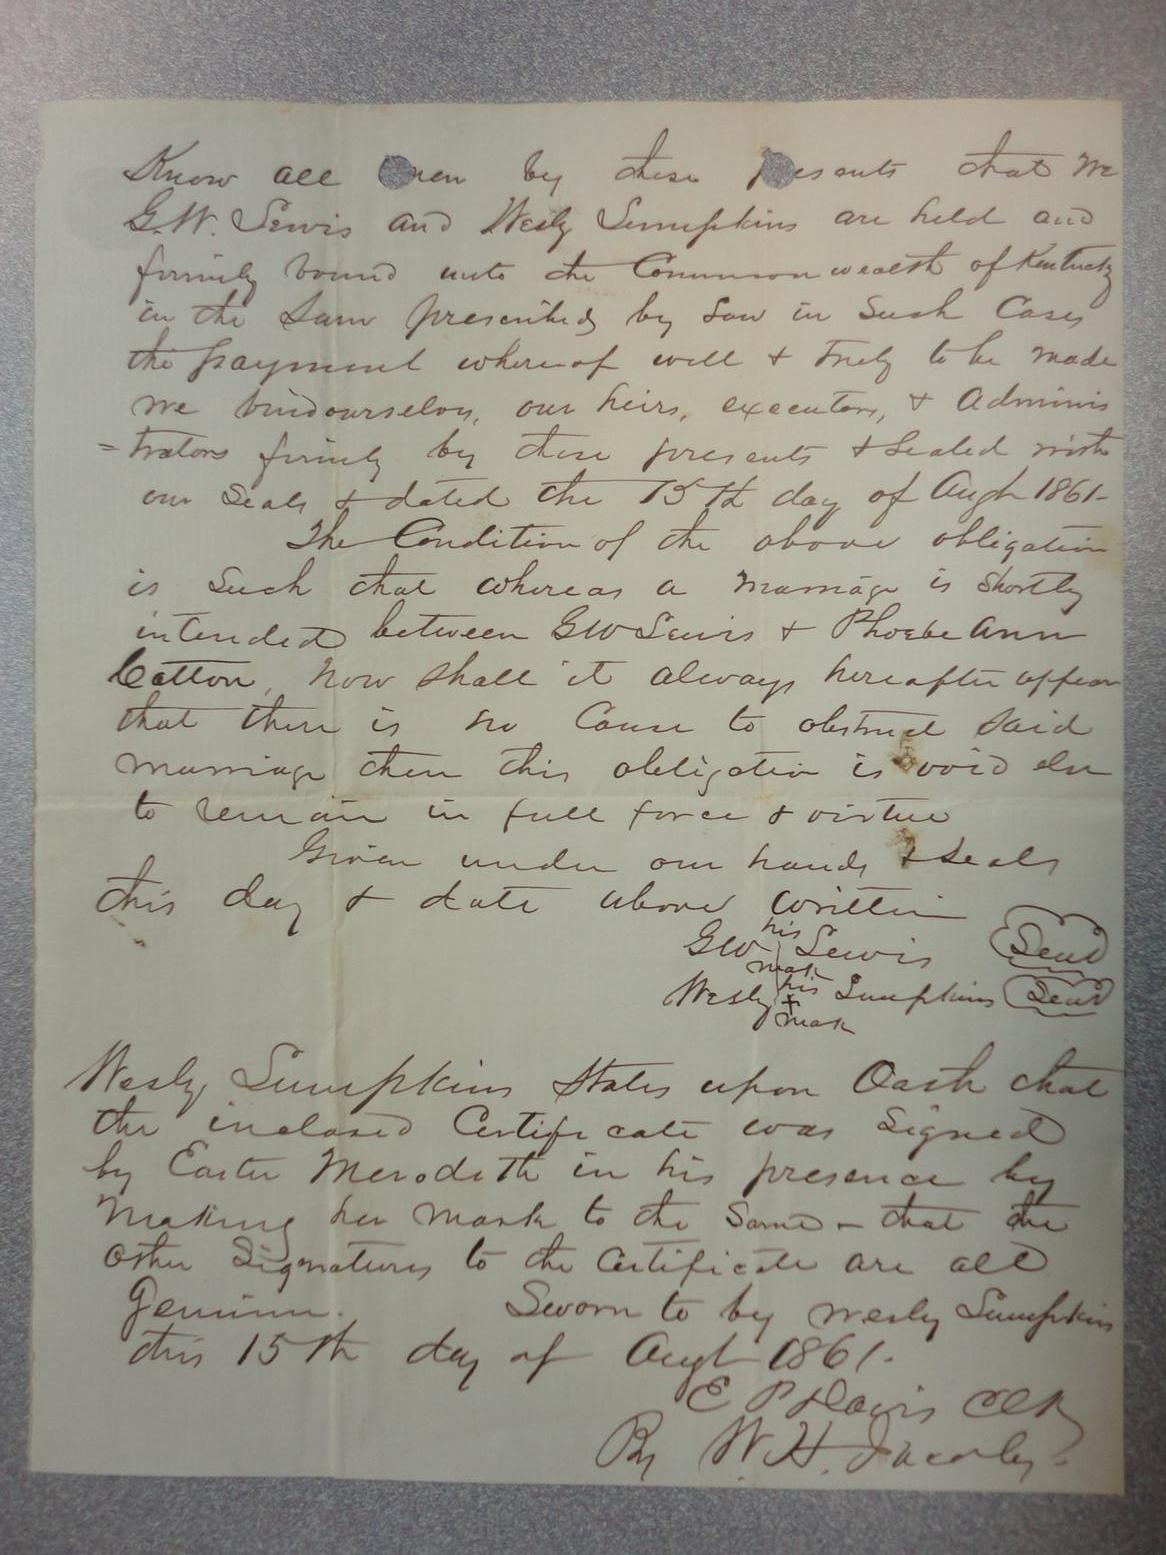 Know all men by these presents that We
G.W. Lewis and Wesly Lumpkins are held and
firmly bound unto the Commonwealth of Kentucky
in the Sum prescribed by Law in Such Cases
the payment where of well & truly to be made
We bind ourselves, our heirs, executors, & Adminis
=trators firmly by these presents & Sealed with
our Seals & dated the 15th day of Augt 1861-
The Condition of the above obligation
is Such that whereas a marriage is Shortly
intended between GW Lewis & Phoebe Ann
Catton, now shall it always hereafter appear
that there is no Cause to obstruct Said
marriage then this obligation is void else
to remain in full force & virtue
Given under our hands & Seals
this day & date above written
his
GW Lewis Seal
mark
his
Wesly + Lumpkins Seal
mark
Wesly Lumpkins States upon Oath that
the inclosed Certificate was Signed
by Easter Merodeth in his presence by
Making her mark to the Same - that the
other Signatures to the Certificate are all
Genuine. Sworn to by Wesly Lumpkins
this 15th day of Augt 1861.
E P Davis Clk
By W. H. Jacoby.